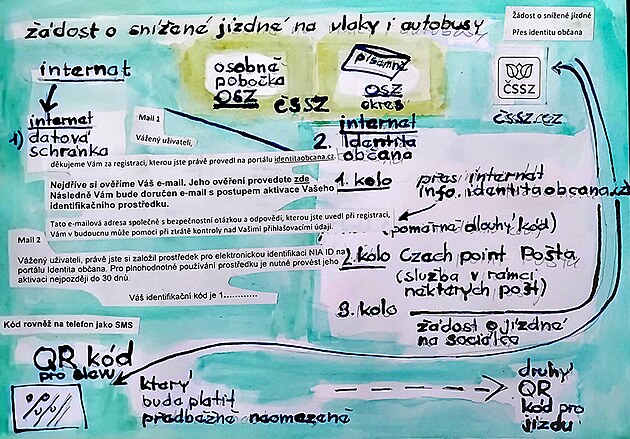 žádost o snížené jízdné na vlaky i autobusy
Žádost o snížené jízdné
Přes identitu občana
internat
osobně
pobočka
OSZ
ČSSZ
písemně
OSZ
okres
ČSSZ
ČSSZ.cz
internet
1) datová
schránka
Mail 1
Vážený uživateli,
děkujeme Vám za registraci, kterou jste právě provedl na portálu identitaobcana.cz.
Nejdříve si ověříme Váš e-mail. Jeho ověření provedete zde
Následně Vám bude doručen e-mail s postupem aktivace Vašeho
identifikačního prostředku.
Tato e-mailová adresa společně s bezpečnostní otázkou a odpovědí, kterou jste uvedl při registraci,
Vám v budoucnu může pomoci při ztrátě kontroly nad Vašimi přihlašovacími údaji.
Mail 2
Vážený uživateli, právě jste si založil prostředek pro elektronickou identifikaci NIA ID na
portálu Identita občana. Pro plnohodnotné používání prostředku je nutné provést jeho
aktivaci nejpozději do 30 dnů.
Váš identifikační kód je 1............
Kód rovněž na telefon jako SMS
internet
2. Identita
občana
1. kolo
přes internet
info.identitaobcana.cz
(poměrně dlouhý kód)
2. kolo Czech point Pošta
(služba v rámci
některých pošt)
3. kolo
žádost o jízdné
na sociálce
QR kód
pro slevu
který
bude platit
předběžně neomezeně
druhý
QR
kód pro
jízdu